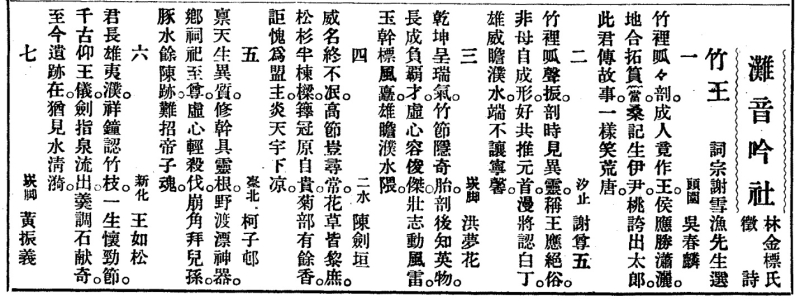 灘音吟社 林金標氏徵詩
竹王 詞宗謝雪漁先生選
一 頭圍 吳春麟
竹裡呱々剖成人竟作王。侯應勝瀟灑。
地合拓篔簹桑記生伊尹桃誇出太郎。
此君傳故事一樣笑荒唐。
二 汐止 謝尊五
竹裡呱聲振剖時見異靈稱王應絕俗。
非母自成形好共推元首漫將認白丁。
雄威瞻濮水端不讓寧馨
三 崁脚 洪夢花
乾坤呈瑞氣竹節隱奇胎剖後知英物。
長成負霸才虛心容俊傑壯志動風雷
玉幹標風嘉雄瞻濮水隈。
四 二水 陳劍垣
威名終不泯高節豈尋常花草皆黎庶。
松杉半棟樑籜冠原自貴菊部有餘香。
詎愧爲盟主炎天宇下凉
五 臺北 柯子邨
禀天生異質修幹具靈根野渡漂神器。
鄉祠祀至尊虛心輕殺伐崩角拜兒孫。
豚水餘陳跡難招帝子魂。
六 新化 王如松
君長雄夷濮祥鐘認竹枝一生懷勁節。
千古仰王儀劍指泉流出羹調石献奇。
至今遺跡在猶見水淸漪。
七 崁脚 黃振義